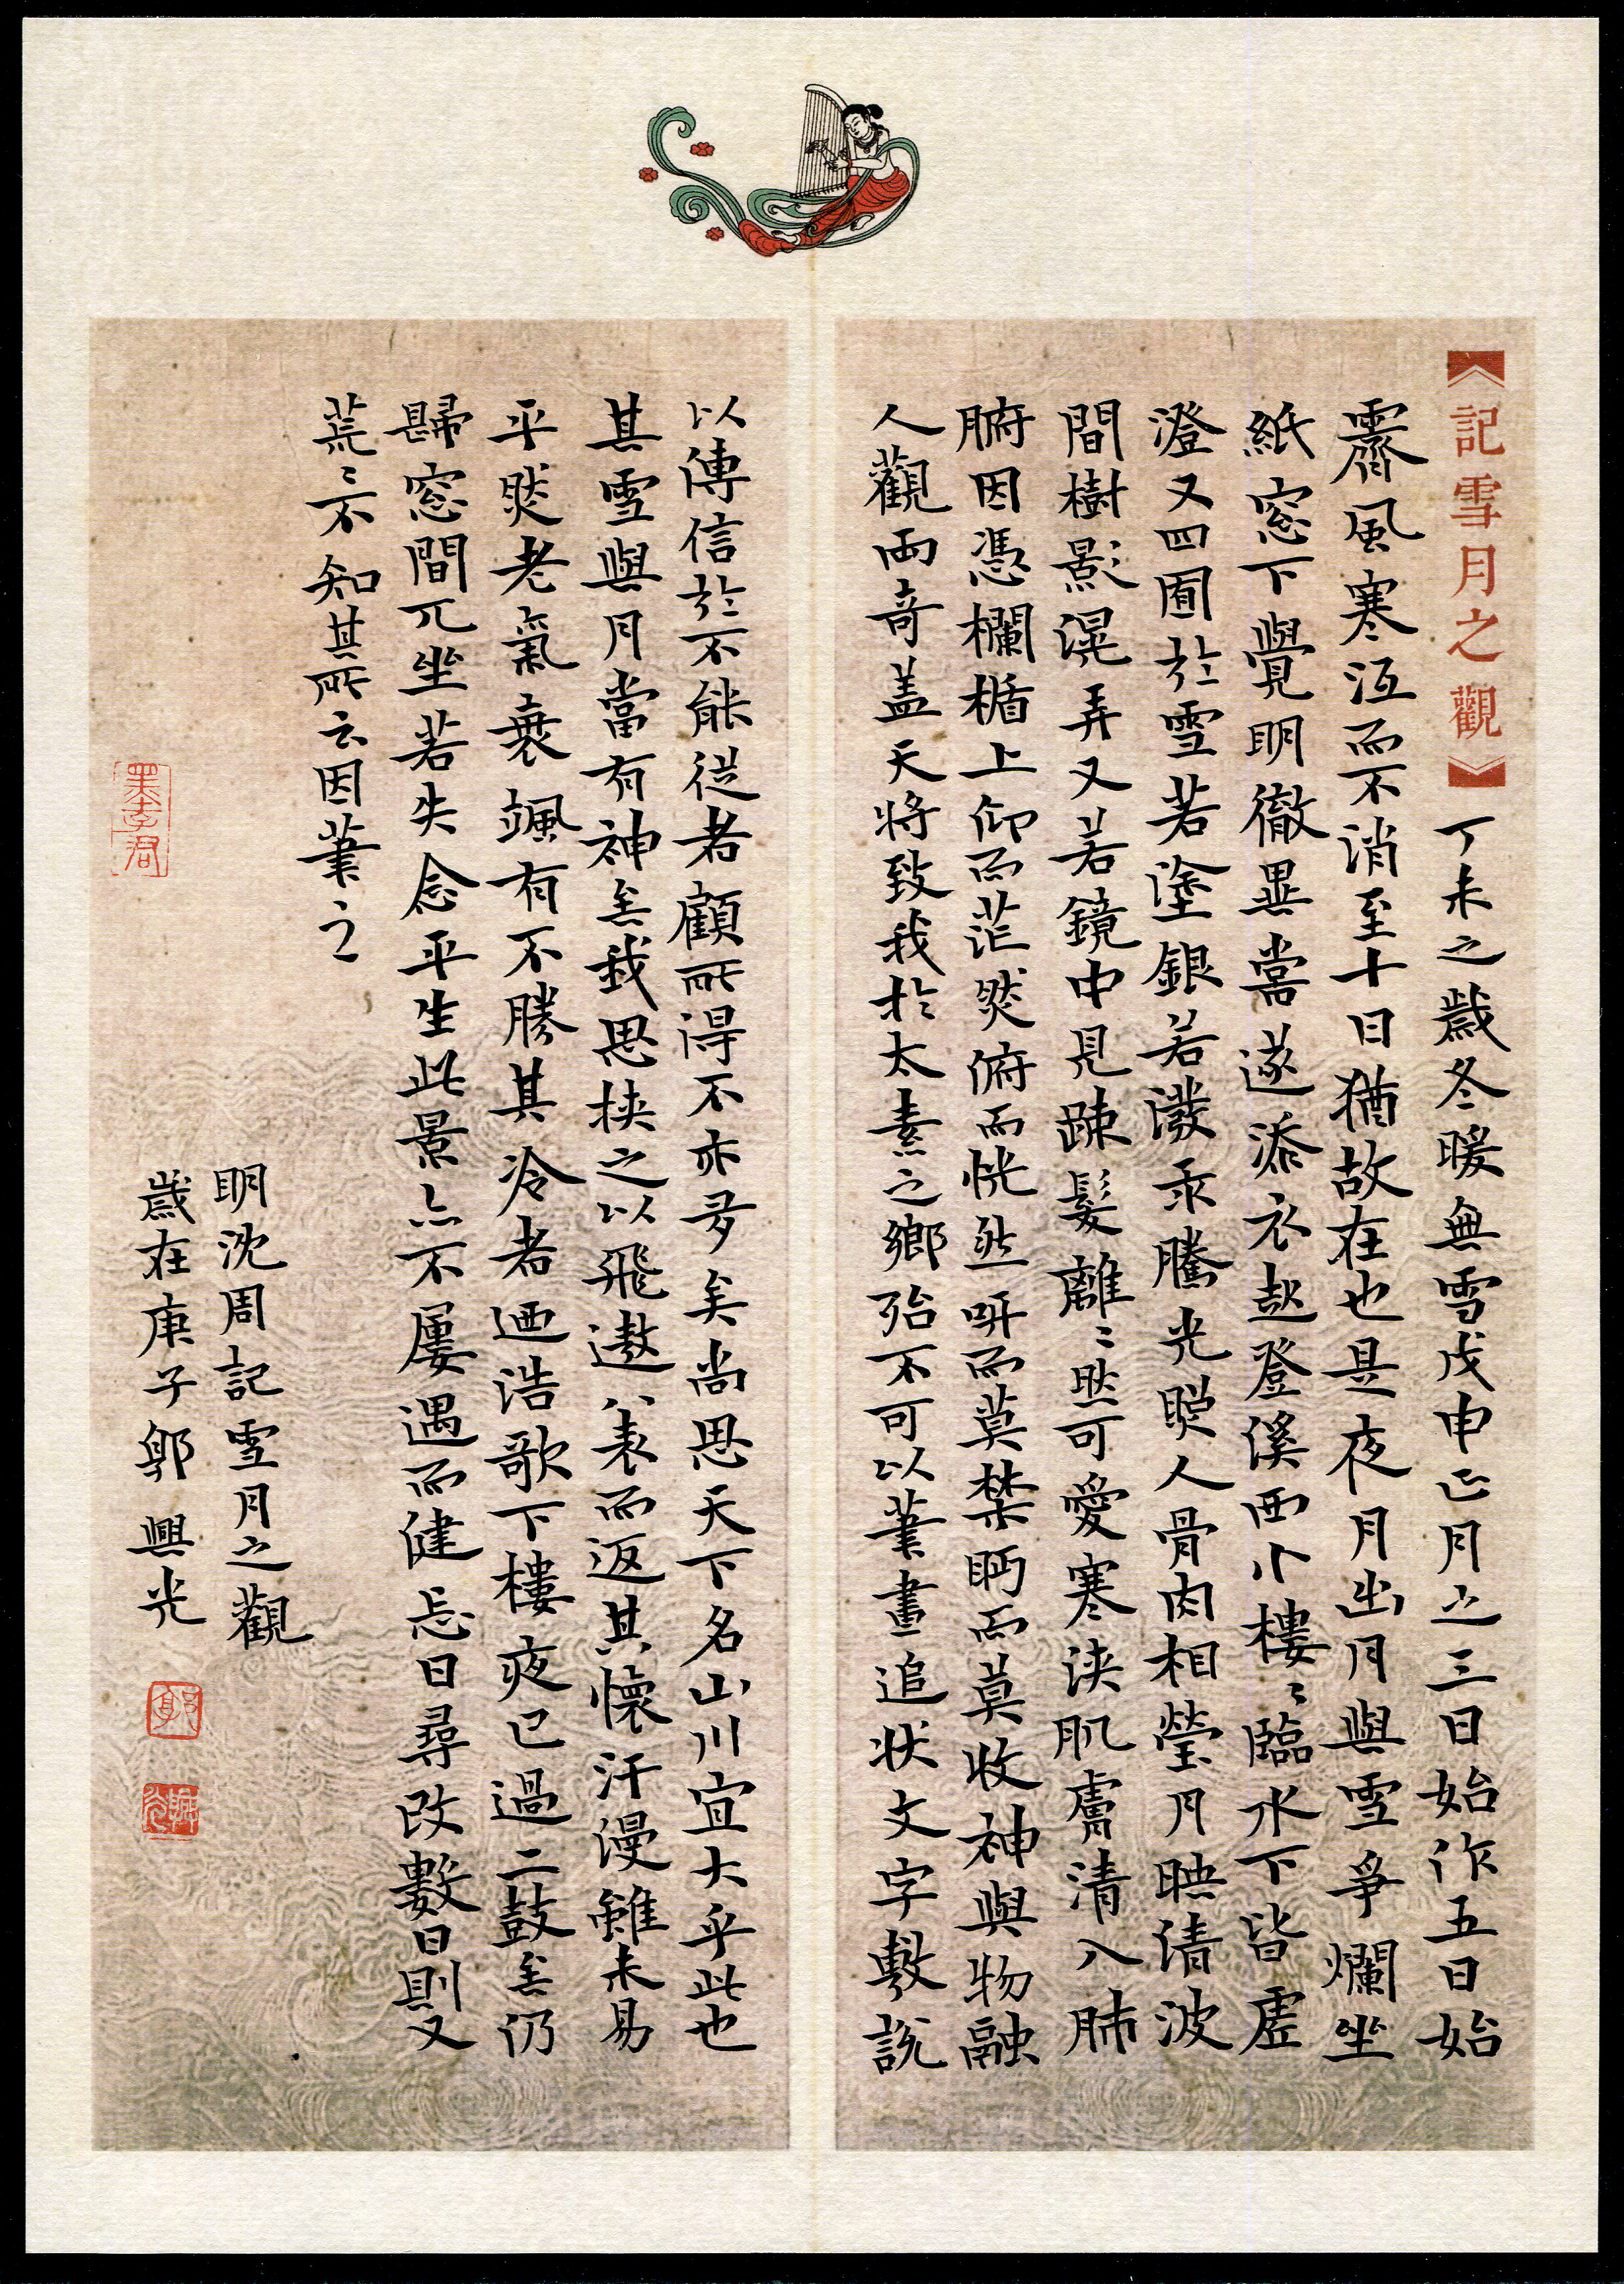 【記雪月之觀】丁未之歲冬暖無雪戊申正月之三日始作五日始
霽風寒沍而不消至十日猶故在也是夜月出月與雪爭爛坐
紙窓下覺明徹異嘗遂添衣起登溪西小樓〻臨水下皆虛
澄又四囿於雪若塗銀若潑汞騰光照人骨肉相瑩月映清波
間樹影滉弄又若鏡中見疎髮離〻然可愛寒浹肌膚清入肺
腑因憑欄楯上仰而茫然俯而恍然呀而莫禁眄而莫收神與物融
人觀兩奇蓋天將致我於太素之鄉殆不可以筆畫追狀文字敷說
以傳信於不能從者顧所得不亦多矣尚思天下名山川宜大乎此也
其雪與月當有神矣我思挾之以飛遨八表而返其懷汗漫雖未易
平然老氣衰颯有不勝其冷者迺浩歌下樓夜已過二鼓矣仍
歸窓間兀坐若失念平生此景亦不屢遇而健忘日尋改數日則又
荒〻不知其所云因筆之
明沈周記雪月之觀
歲在庚子郭興光